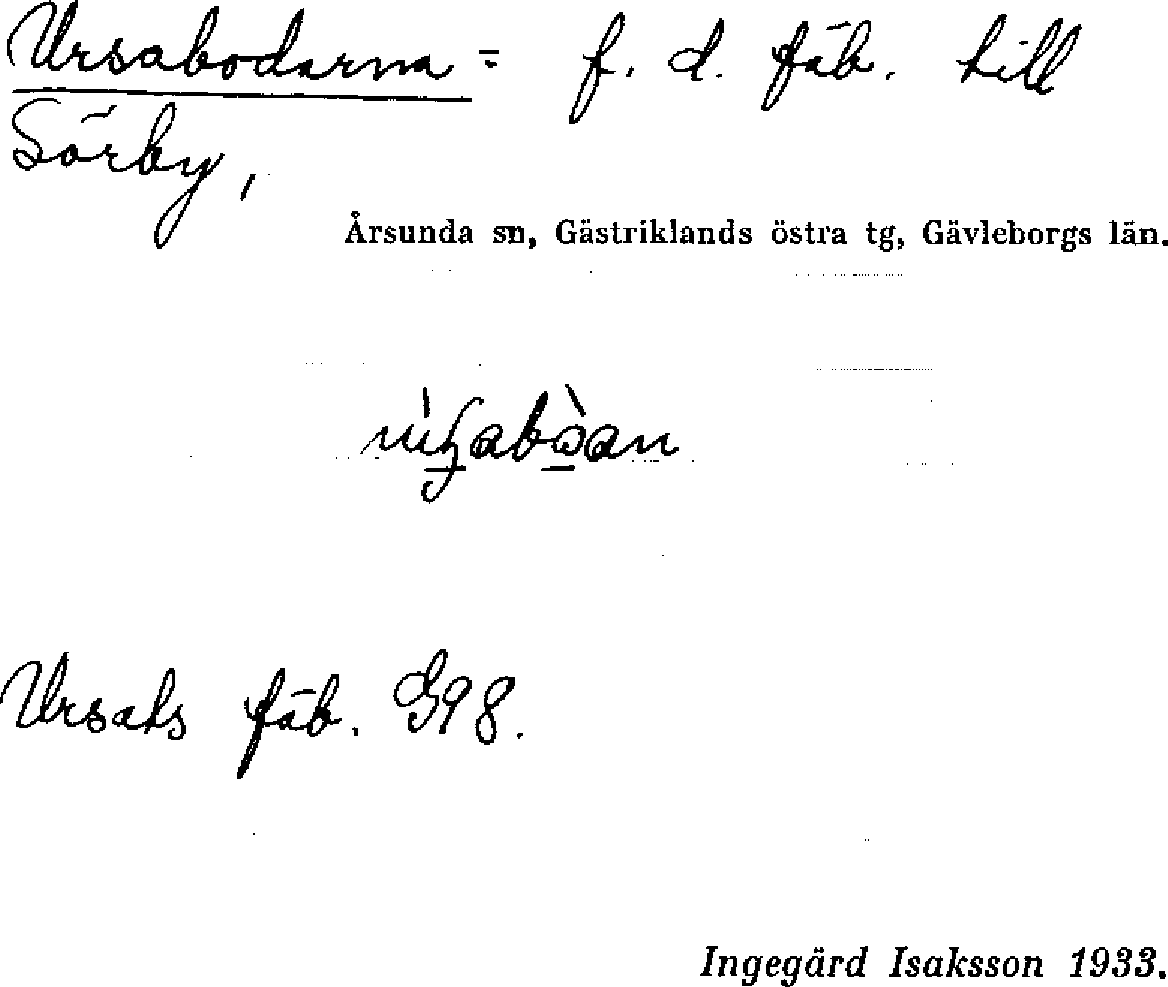 Ursabodarna = f. d. fäb. till
Sörby,
Årsunda sn, Gästriklands östra tg, Gävleborgs län.
Ursaks fäb. G98.
Ingegärd Isaksson 1933.